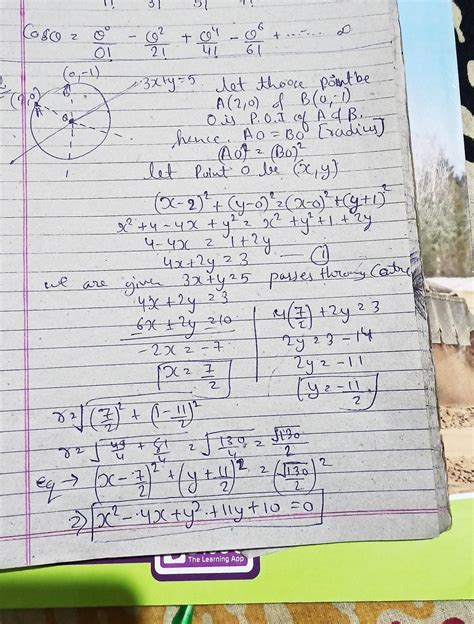 1! 3! 5!
Cosθ = θ⁰/0! - θ²/2! + θ⁴/4! - θ⁶/6! + ...... ∞
(0,-1)
3x+y=5
(2,0)
B
A
O
let those point be
A(2,0) & B(0,-1)
O is P.O.I of A & B.
hence AO = BO [radius]
(AO)² = (BO)²
let Point O be (x,y)
(x-2)² + (y-0)² = (x-0)² + (y+1)²
x² + 4 - 4x + y² = x² + y² + 1 + 2y
4 - 4x = 1 + 2y
4x + 2y = 3 — ①
we are given 3x+y=5 passes through Centre
4x + 2y = 3
6x + 2y = 10
-2x = -7
x = 7/2
4(7/2) + 2y = 3
2y = 3 - 14
2y = -11
y = -11/2
r = √(7/2)² + (1-11/2)²
r = √49/4 + 81/4 = √130/4 = √130/2
eq → (x - 7/2)² + (y + 11/2)² = (√130/2)²
⇒ x² - 4x + y² + 11y + 10 = 0
The Learning App